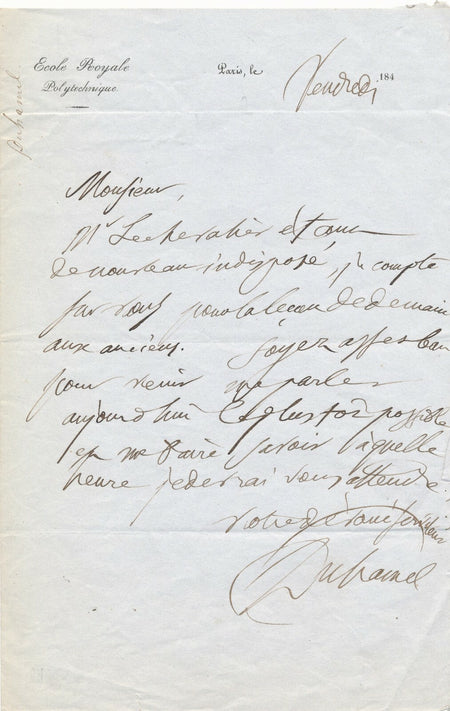 Ecole Royale
Polytechnique.
Paris, le Vendredi 184
Duhamel
Monsieur,
Mr Lechevalier étant
de nouveau indisposé, je compte
sur vous pour la leçon de demain
aux anciens. Soyez assez bon
pour venir me parler
aujourd'hui le plus tôt possible
et me faire savoir à quelle
heure je devrai vous attendre.
Votre dévoué serviteur
Duhamel